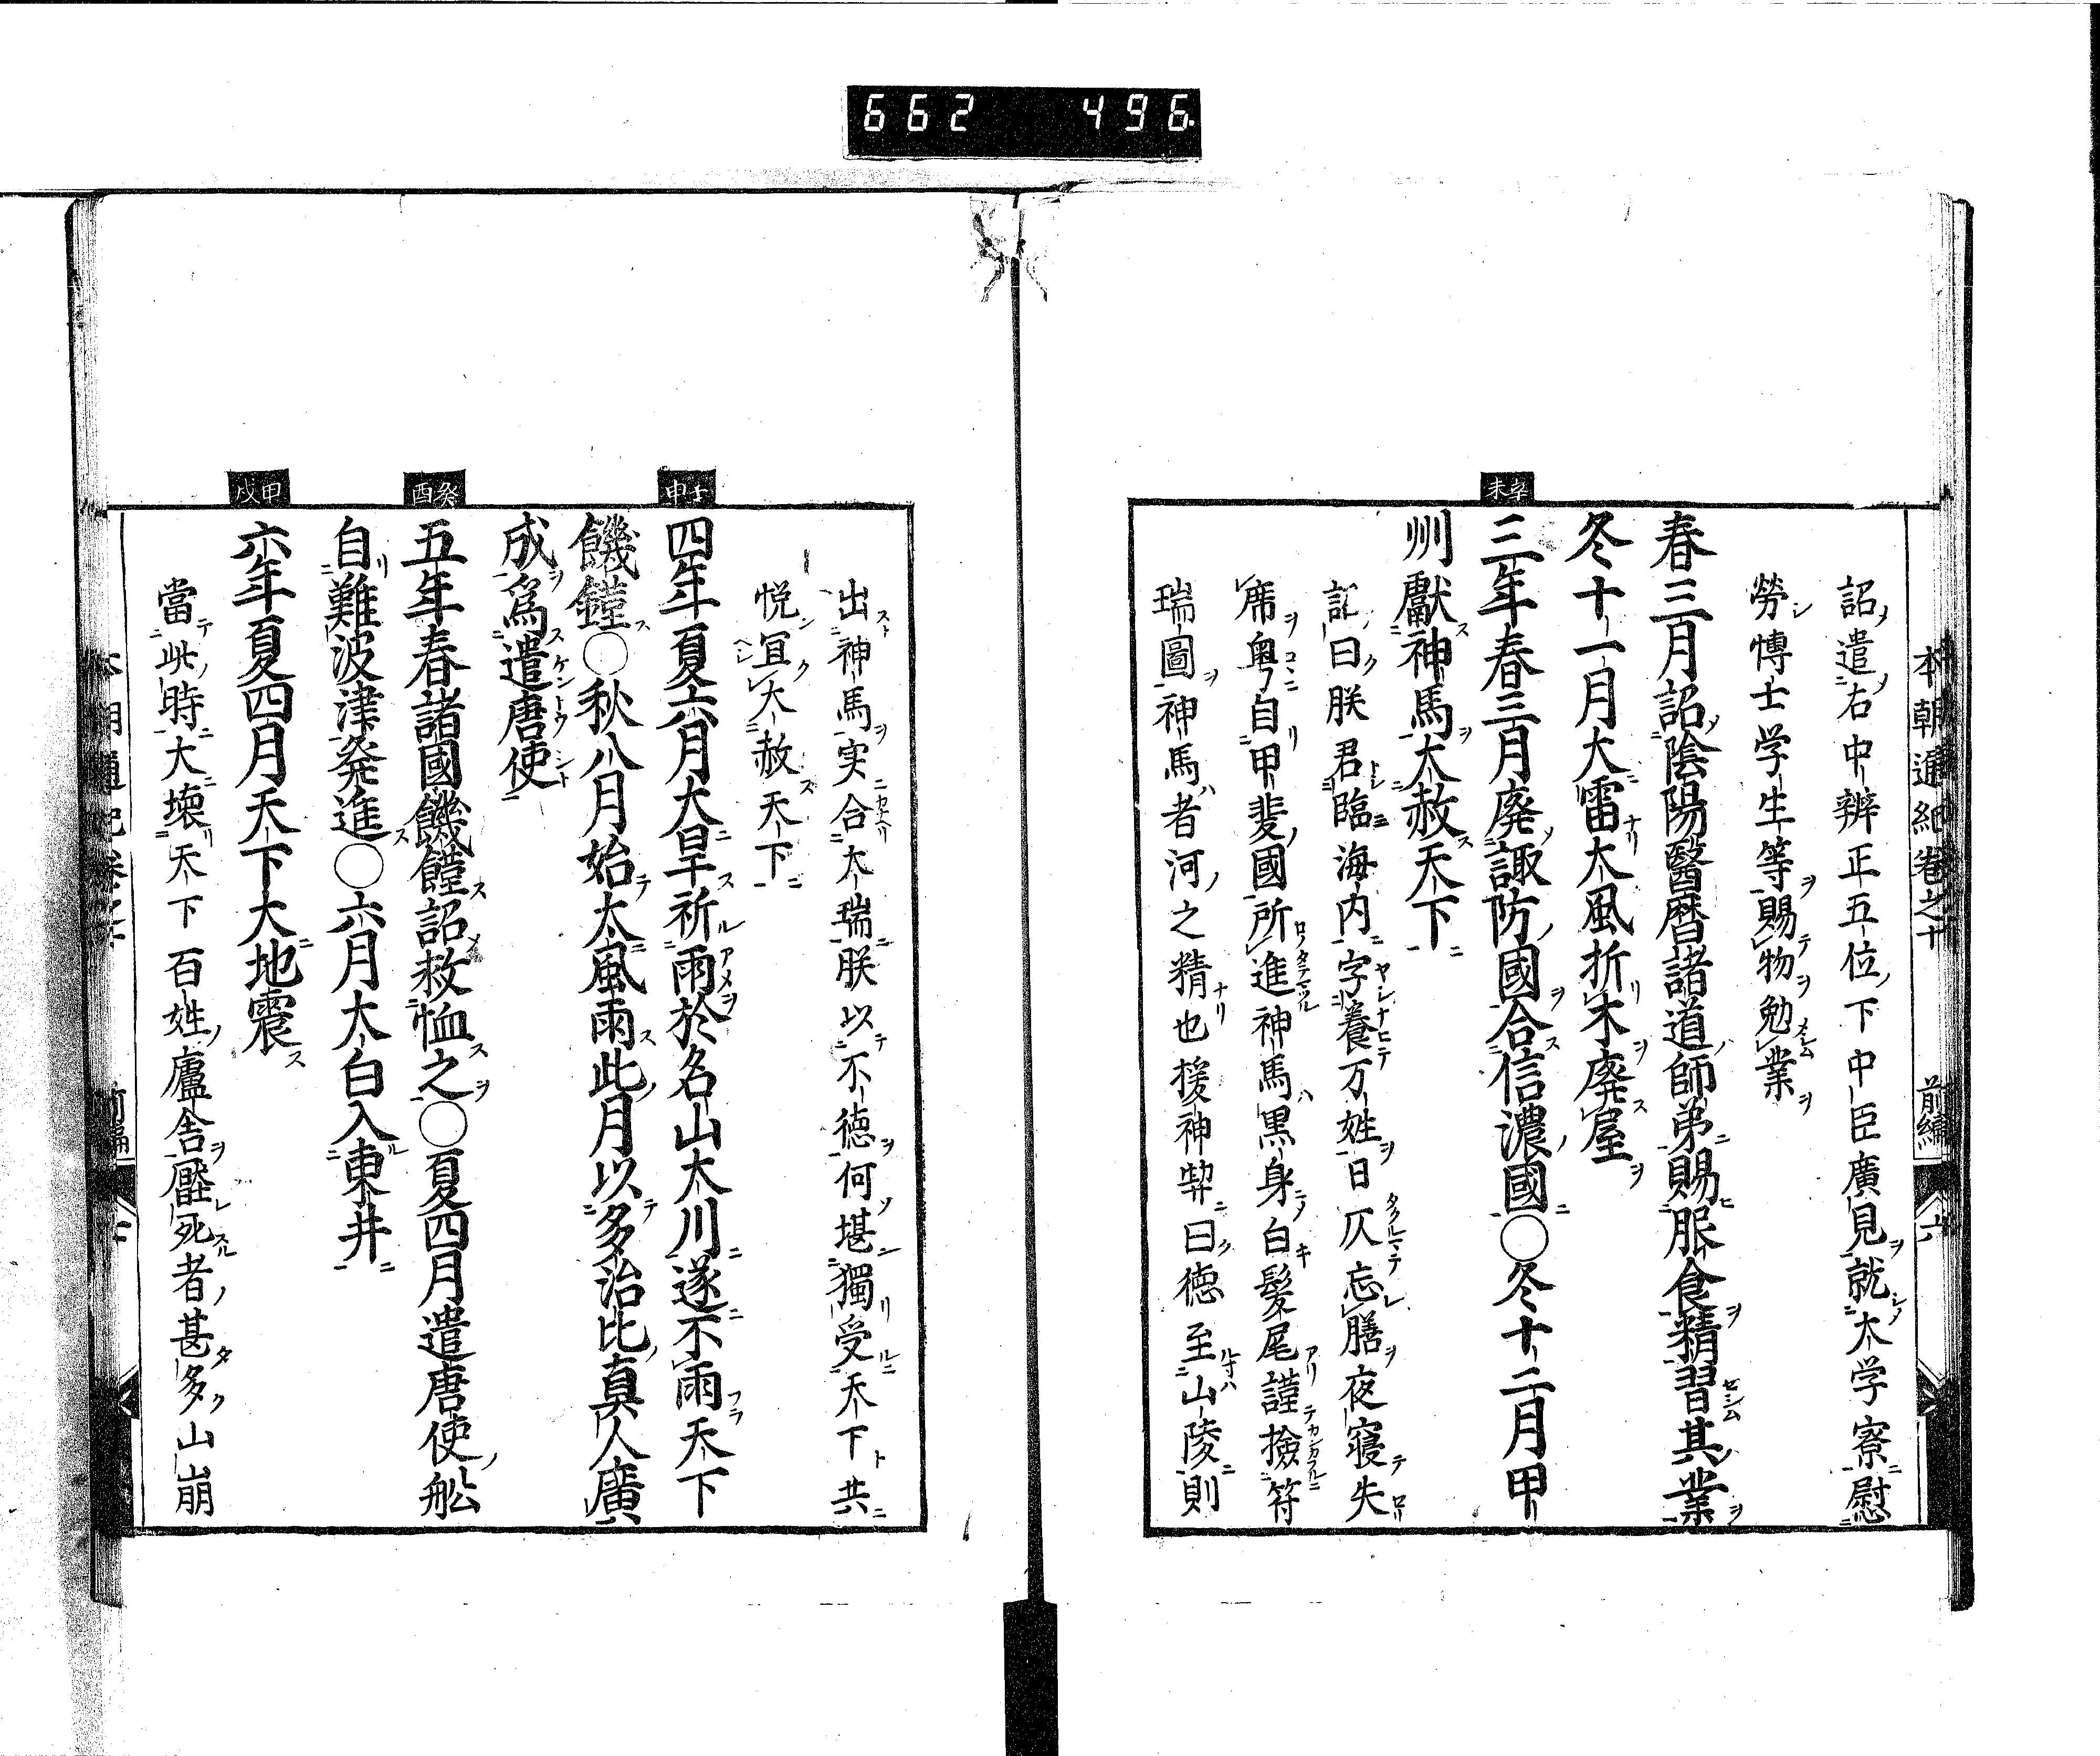 662 496
本朝通紀卷之十 前編 六
詔遣右中辨正五位下中臣廣見就大学寮慰
勞博士学生等賜物勉業
春三月詔陰陽醫暦諸道師弟賜服食精習其業
冬十一月大雷大風折木廃屋
辛未
三年春三月廃諏防國合信濃國○冬十二月甲
州獻神馬大赦天下
詔曰朕君臨海内字養万姓日仄忘膳夜寝失
席粤自甲斐國所進神馬黒身白髪尾謹撿符
瑞圖神馬者河之精也援神契曰徳至山陵則
出神馬実合大瑞朕以不徳何堪獨受天下共
悦宜大赦天下
壬申
四年夏六月大旱祈雨於名山大川遂不雨天下
饑饉○秋八月始大風雨此月以多治比真人廣
成爲遣唐使
癸酉
五年春諸國饑饉詔救恤之○夏四月遣唐使舩
自難波津発進○六月太白入東井
甲戌
六年夏四月天下大地震
當此時大壊天下百姓廬舎壓死者甚多山崩